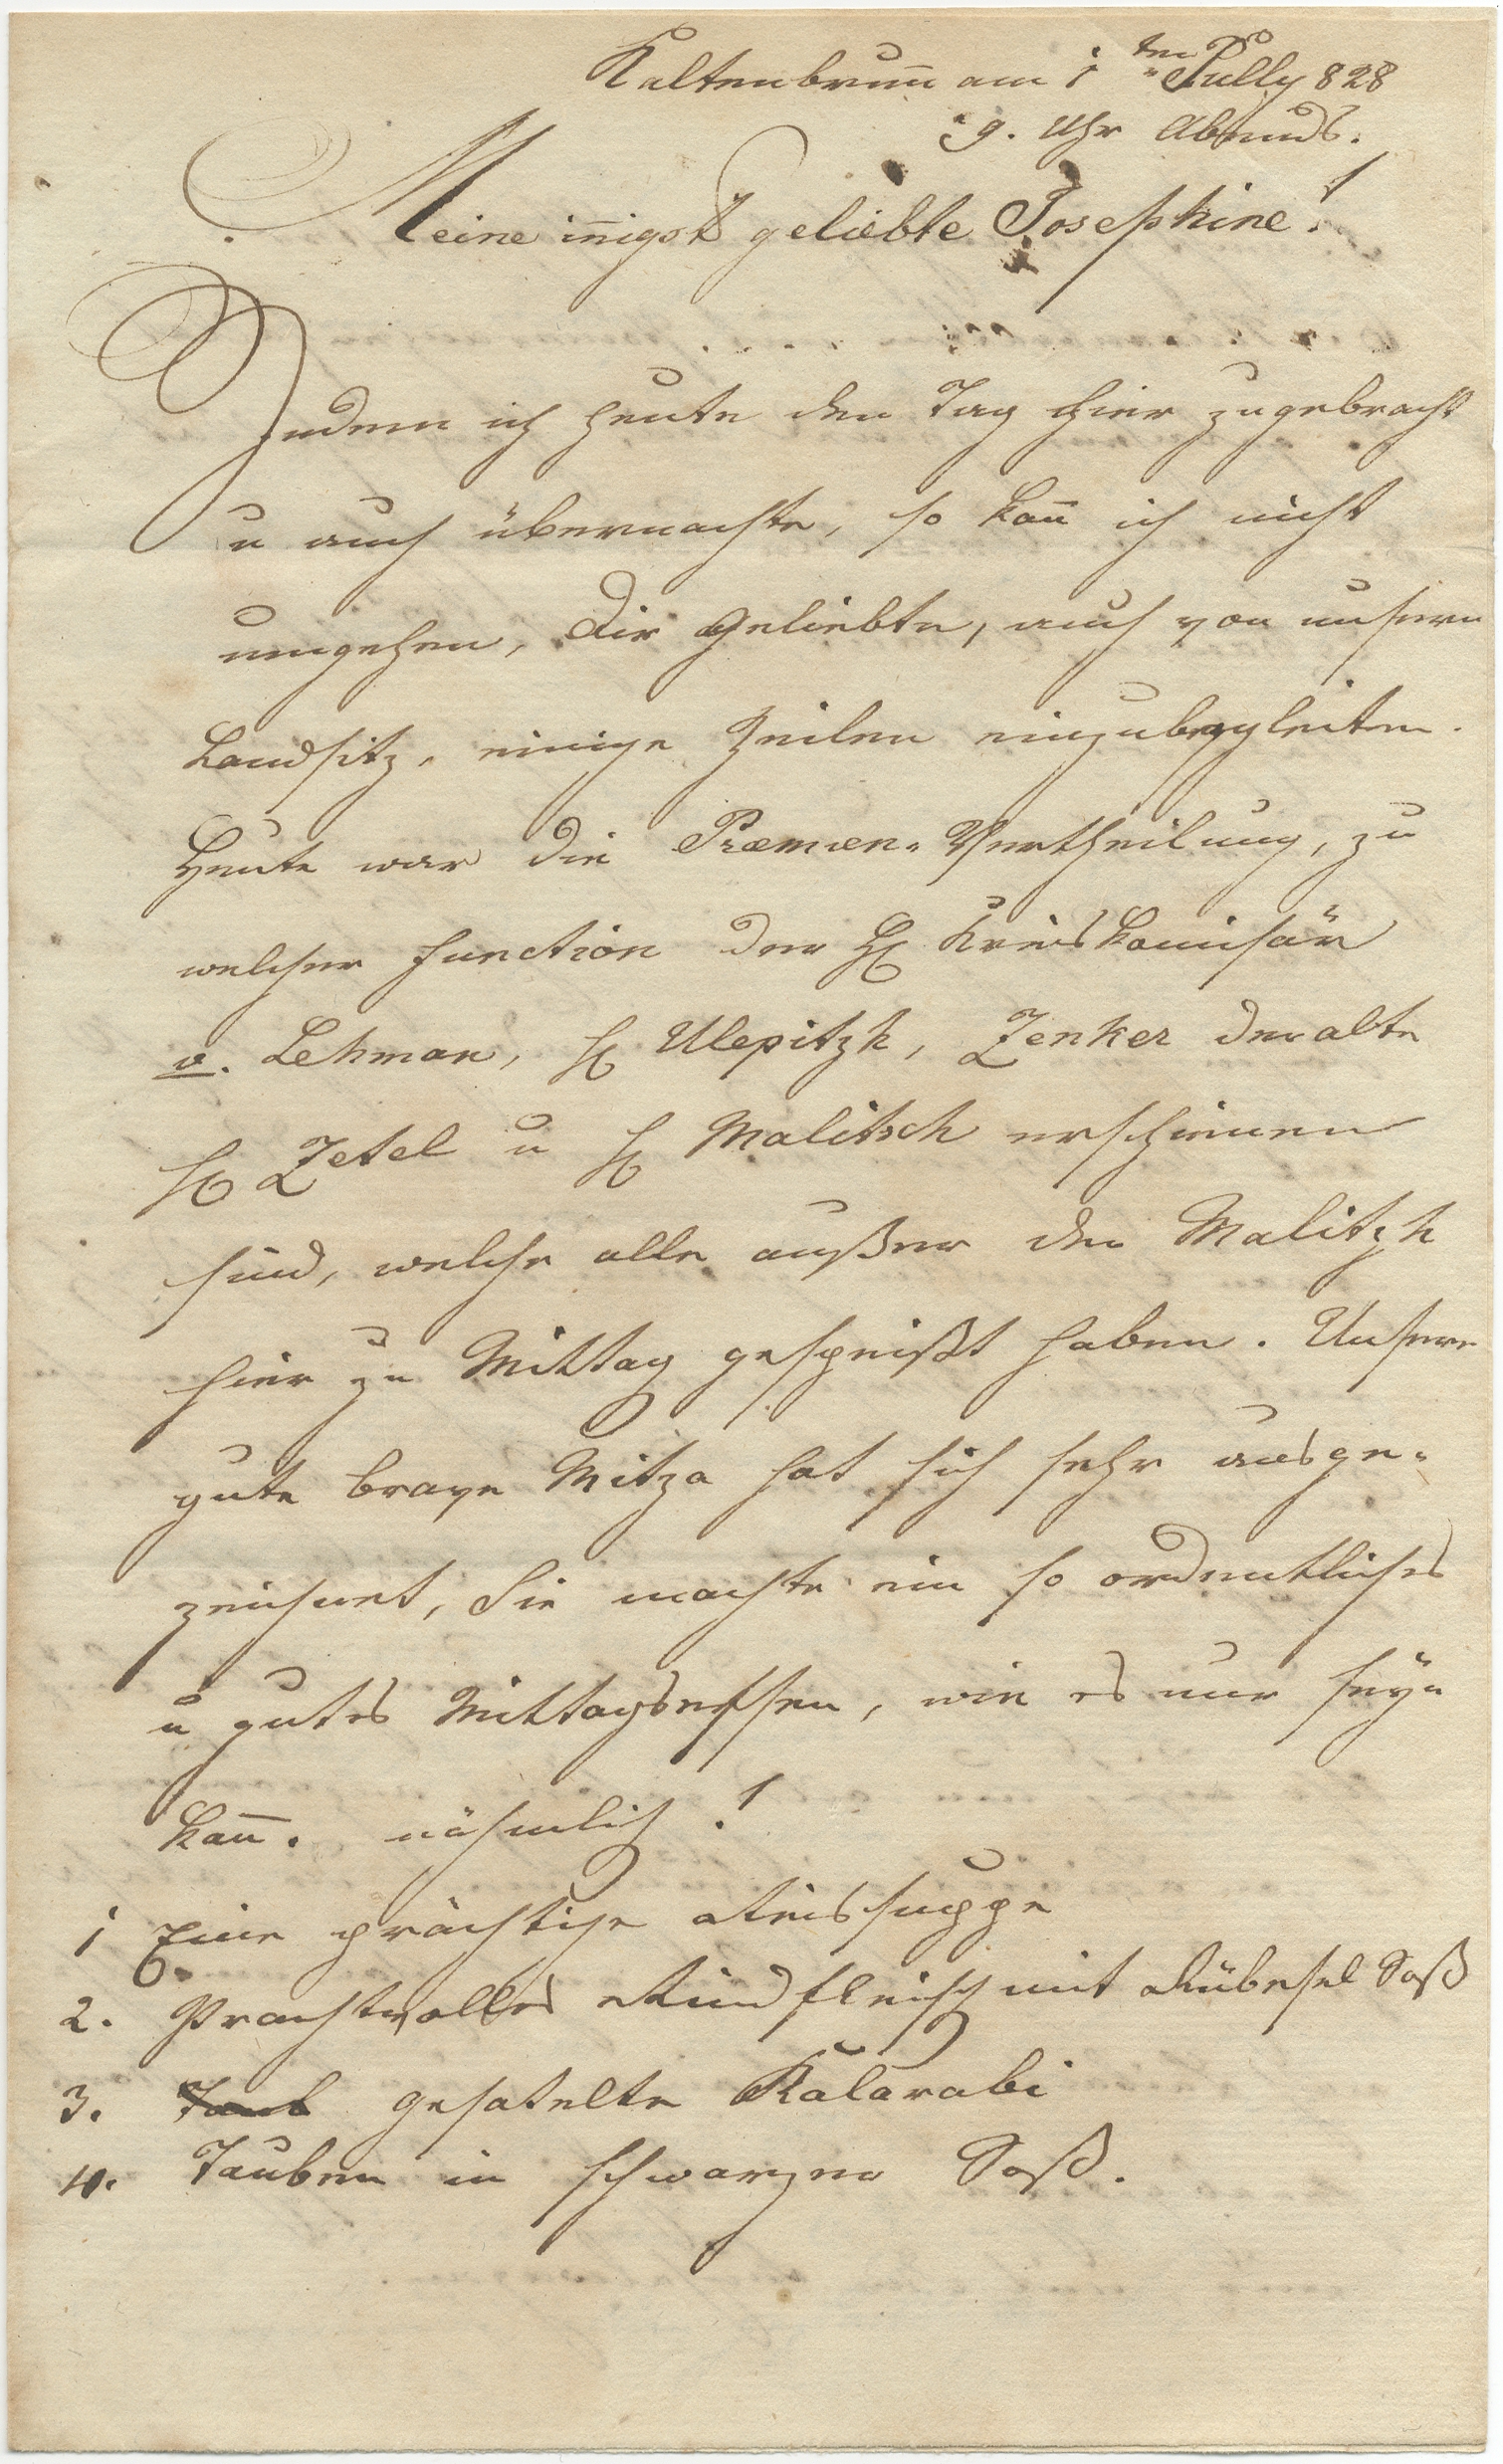 Kaltenbrun̄ am 1ten Jully 828
9. Uhr Abends.
Meine in̄igst geliebte Josephine!
Indem ich heute den Tag hier zugebracht
u auch übernachte, so kan̄ ich nicht
umgehen, Dir Geliebte, auch von unsern
Landsitz, einige Zeilen einzubegleiten.
Heute war die Præmien-Vertheilung, zu
welcher Function der H Kreiskom̄isär
v. Lehman, H Ulepitzh, Zenker der alte
H Zetel u H Malitsch erschienen
sind, welche alle außer den Malitzh
hier zu Mittag gespeißt haben. Unsere
gute brave Mitza hat sich sehr ausge-
zeichnet, Sie machte ein so ordentliches
u gutes Mittagsessen, wie es nur seyn
kan̄. nähmlich!
1 Eine prächtige Reissuppe
2. Prachtvolles Rindfleisch mit Ribesel Soß
3. gefatelte Kalarabi
4. Tauben in schwarzer Soß.